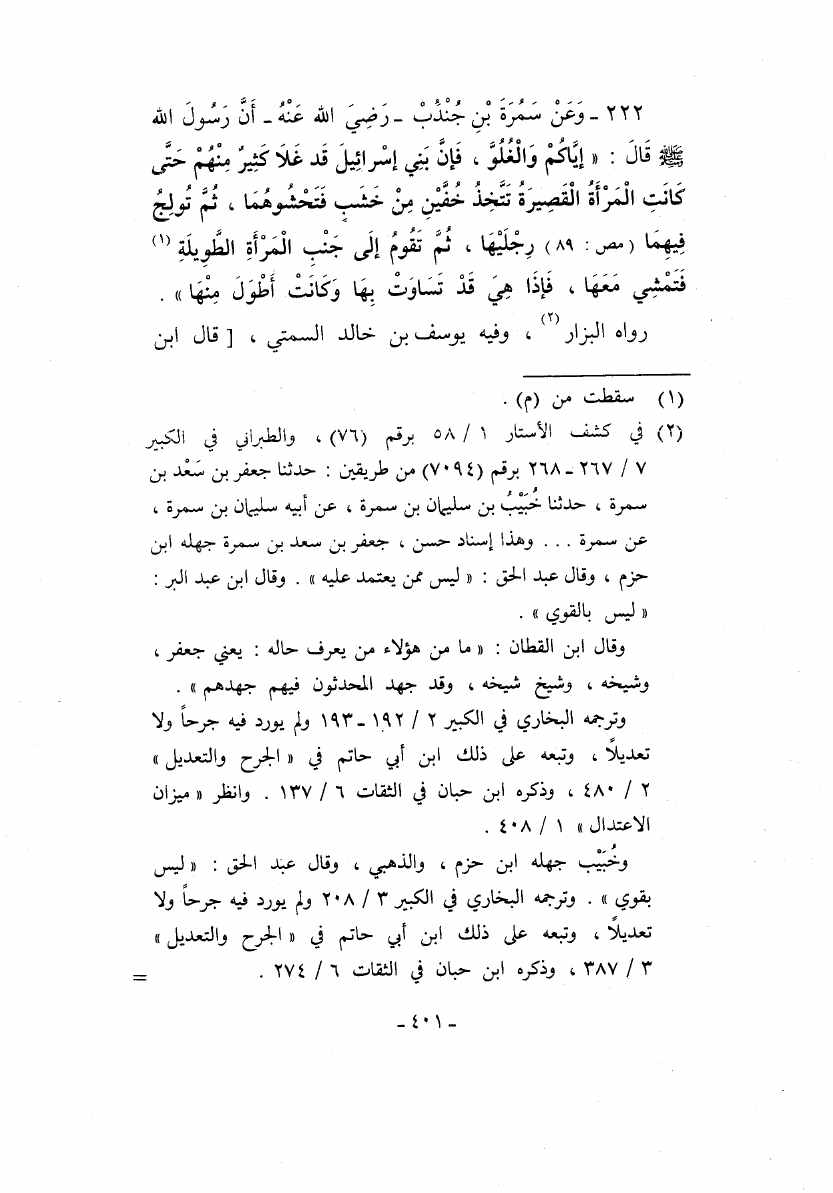 ٢٢٢ ـ وَعَنْ سَمُرَةَ بْنِ جُنْدُبْ ـ رَضِيَ اللهُ عَنْهُ ـ أَنَّ رَسُولَ اللهِ
ﷺ قَالَ : « إِيَّاكُمْ وَالْغُلُوَّ ، فَإِنَّ بَنِي إِسْرائِيلَ قَد غَلَا كَثِيرٌ مِنْهُمْ حَتَّى
كَانَتِ الْمَرْأَةُ الْقَصِيرَةُ تَتَّخِذُ خُفَّيْنِ مِنْ خَشَبٍ فَتَحْشُوهُمَا ، ثُمَّ تُولِجُ
فِيهِمَا (مص : ٨٩) رِجْلَيْهَا ، ثُمَّ تَقُومُ إِلَى جَنْبِ الْمَرْأَةِ الطَّوِيلَةِ (١)
فَتَمْشِي مَعَهَا ، فَإِذَا هِيَ قَدْ تَسَاوَتْ بِهَا وَكَانَتْ أَطْوَلَ مِنْهَا » .
رواه البزار (٢) ، وفيه يوسف بن خالد السمتي ، [ قال ابن
(١) سقطت من (م) .
(٢) في كشف الأستار ١ / ٥٨ برقم (٧٦) ، والطبراني في الكبير
٧ / ٢٦٧ ـ ٢٦٨ برقم (٧٠٩٤) من طريقين : حدثنا جعفر بن سَعْد بن
سمرة ، حدثنا خُبَيْبُ بن سليمان بن سمرة ، عن أبيه سليمان بن سمرة ،
عن سمرة ... وهذا إسناد حسن ، جعفر بن سعد بن سمرة جهله ابن
حزم ، وقال عبد الحق : « ليس ممن يعتمد عليه » . وقال ابن عبد البر :
« ليس بالقوي » .
وقال ابن القطان : « ما من هؤلاء من يعرف حاله : يعني جعفر ،
وشيخه ، وشيخ شيخه ، وقد جهد المحدثون فيهم جهدهم » .
وترجمه البخاري في الكبير ٢ / ١٩٢ ـ ١٩٣ ولم يورد فيه جرحاً ولا
تعديلاً ، وتبعه على ذلك ابن أبي حاتم في « الجرح والتعديل »
٢ / ٤٨٠ ، وذكره ابن حبان في الثقات ٦ / ١٣٧ . وانظر « ميزان
الاعتدال » ١ / ٤٠٨ .
وخُبَيْب جهله ابن حزم ، والذهبي ، وقال عبد الحق : « ليس
بقوي » . وترجمه البخاري في الكبير ٣ / ٢٠٨ ولم يورد فيه جرحاً ولا
تعديلاً ، وتبعه على ذلك ابن أبي حاتم في « الجرح والتعديل »
٣ / ٣٨٧ ، وذكره ابن حبان في الثقات ٦ / ٢٧٤ . =
ـ ٤٠١ ـ